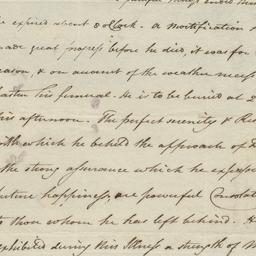 he expired about 8 oClock. A mortification
made great progress before he died, it was for
reason, & on account of the weather necess
hasten his funeral. He is to be buried at 2
this afternoon. The perfect serenity & Res
with which he beheld the approach of D
the strong assurance which he express
future happiness, are powerful Consolat
to those whom he has left behind. H
exhibited during his Illness a strength of M